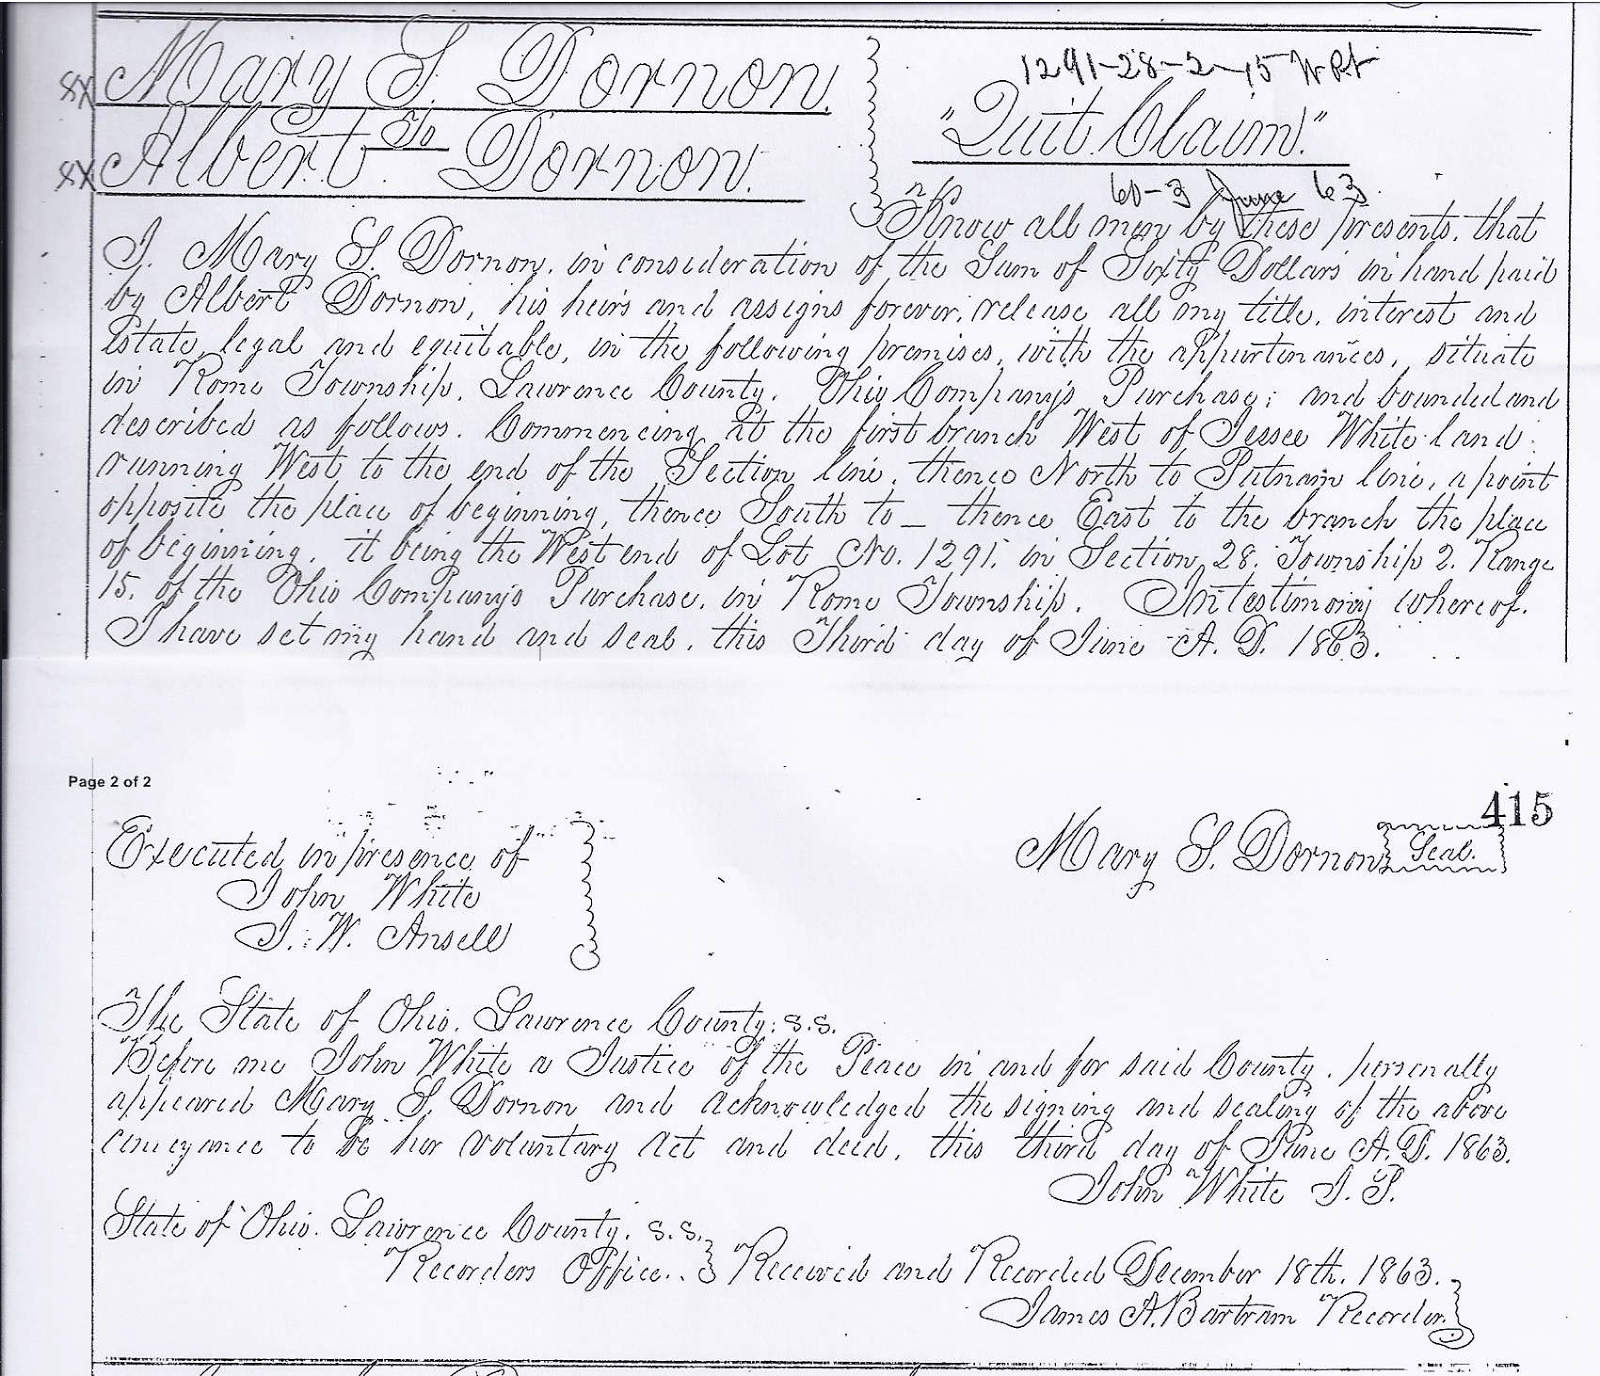 Mary S. Dornon.
To
Albert Dornon.
1291-28-2-15 W Pt
"Quit Claim."
60-3 June 63
Know all men by these presents, that
I, Mary S. Dornon, in consideration of the Sum of Sixty Dollars in hand paid
by Albert Dornon, his heirs and assigns forever, release all my title, interest and
Estate, legal and equitable, in the following premises, with the appurtenances, situate
in Rome Township, Lawrence County, Ohio Company's Purchase; and bounded and
described as follows. Commencing at the first branch West of Jessee White land:
running West to the end of the Section line, thence North to Putnam line, a point
opposite the place of beginning, thence South to _ thence East to the branch the place
of beginning, it being the West end of Lot No. 1291. in Section 28. Township 2. Range
15. of the Ohio Company's Purchase, in Rome Township. In testimony whereof.
I have set my hand and seal, this Third day of June A. D. 1863.
Page 2 of 2
415
Executed in presence of
John White
J. W. Ansell
Mary S. Dornon Seal.
The State of Ohio, Lawrence County: s.s.
Before me John White a Justice of the Peace in and for said County, personally
appeared Mary S. Dornon and acknowledged the signing and sealing of the above
conveyance to be her voluntary act and deed, this third day of June A. D. 1863.
John White J. P.
State of Ohio. Lawrence County, s.s.
Recorders Office.. Received and Recorded December 18th. 1863.
James A. Bartram Recorder.